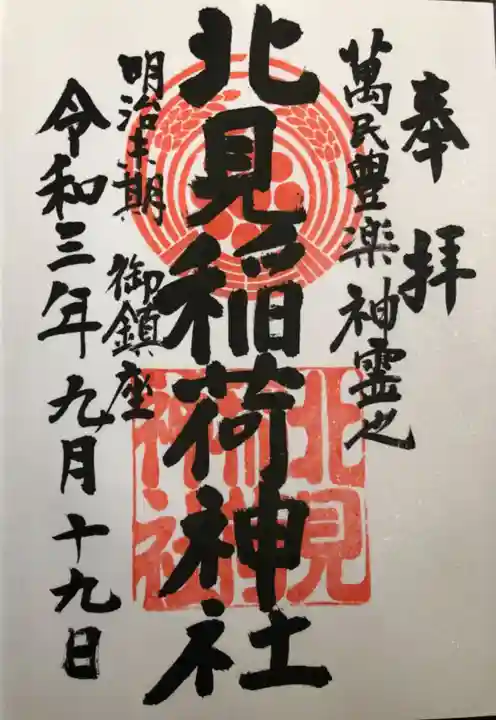 奉拝
萬民豊楽神霊之
北見稲荷神社
明治末期 御鎮座
令和三年九月十九日
北見
神社